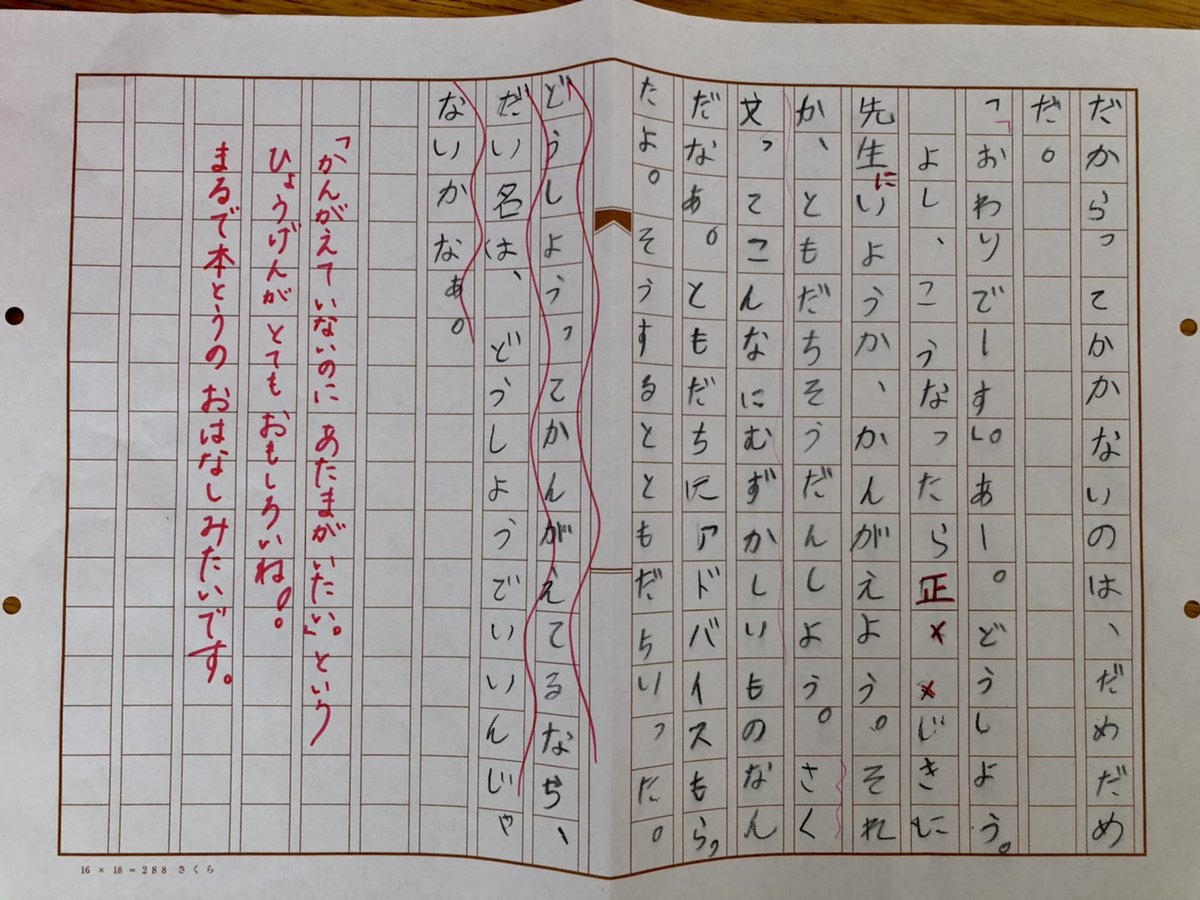 だからってかかないのは、だめだめ
だ。
「おわりでーす」。あー。どうしよう。
よし、こうなったら正××じきに
先生にいようか、かんがえよう。それ
か、ともだちそうだんしよう。さく
文ってこんなにむずかしいものなん
だなあ。ともだちにアドバイスもらっ
たよ。そうするとともだちいった。
どうしようってかんがえてるなら、
だい名は、どうしようでいいんじゃ
ないかなぁ。
「かんがえていないのに あたまがいたい」。という
ひょうげんが とても おもしろいね!!
まるで本とうの おはなしみたいです。
16 × 18 = 288 さくら